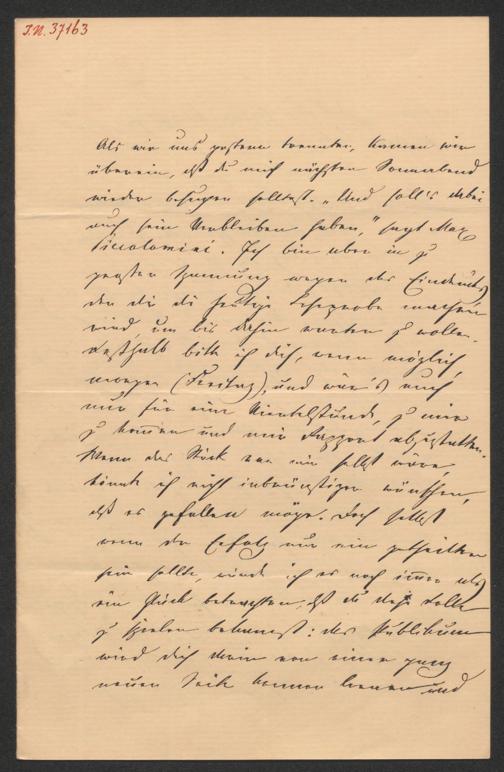 I.N. 37163
Als wir uns gestern trennten, kamen wir
überein, daß du mich nächsten Sonnabend
wieder besuchen solltest. „Und soll's dabei
auch sein Verbleiben haben," sagt Max
Piccolomini. Ich bin aber in zu
großer Spannung wegen des Eindrucks
den dir die heutige Leseprobe machen
wird, um bis dahin warten zu wollen.
Deßhalb bitte ich dich, wenn möglich,
morgen (Freitag), und wär's auch
nur für eine Viertelstunde, zu mir
zu kommen und mir Rapport abzustatten.
Wenn das Stück von mir selbst wäre,
könnte ich nicht inbrünstiger wünschen,
daß es gefallen möge. Doch selbst
wenn der Erfolg nur ein getheilter
sein sollte, würde ich es noch immer als
ein Glück betrachten, daß du diese Rolle
zu spielen bekamst: das Publikum
wird dich darin von einer ganz
neuen Seite kennen lernen und